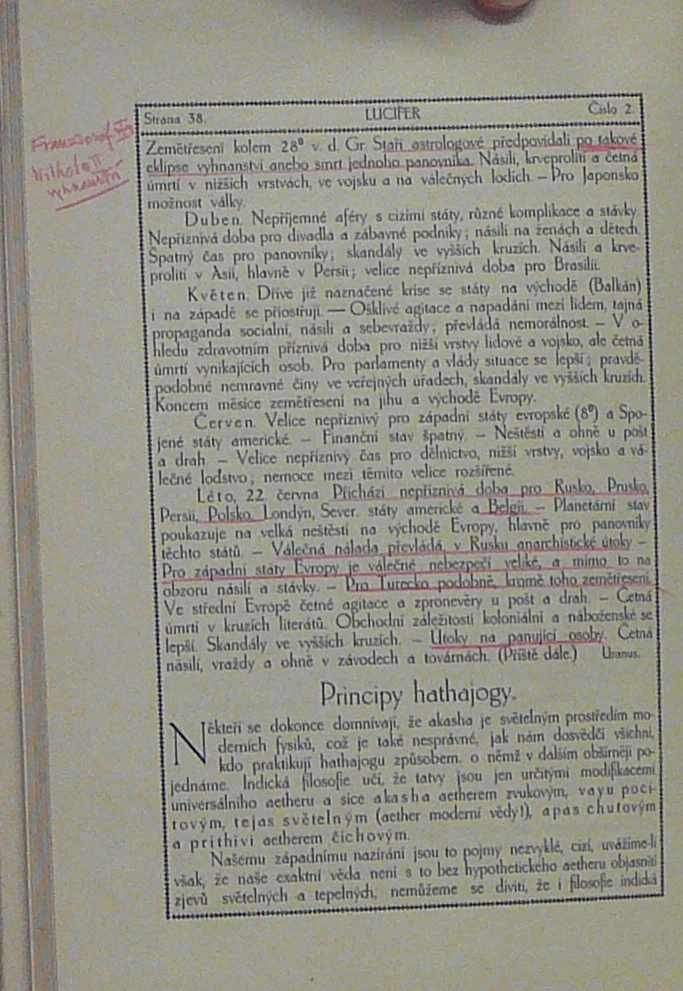 Franz Josef I
Wilhelm II
vyhnanství
Strana 38. LUCIFER Číslo 2.
Zemětřesení kolem 28⁰ v. d. Gr. Staří astrologové předpovídali po takové
eklipse vyhnanství anebo smrt jednoho panovníka. Násilí, krveprolití a četná
úmrtí v nižších vrstvách, ve vojsku a na válečných lodích. — Pro Japonsko
možnost války.
Duben. Nepříjemné aféry s cizími státy, různé komplikace a stávky.
Nepříznivá doba pro divadla a zábavné podniky; násilí na ženách a dětech.
Špatný čas pro panovníky; skandály ve vyšších kruzích. Násilí a krve-
prolití v Asii, hlavně v Persii; velice nepříznivá doba pro Brasilii.
Květen. Dříve již naznačené krise se státy na východě (Balkán)
i na západě se přiostřují. — Ošklivé agitace a napadání mezi lidem, tajná
propaganda socialní, násilí a sebevraždy; převládá nemorálnost. — V o-
hledu zdravotním příznivá doba pro nižší vrstvy lidové a vojsko, ale četná
úmrtí vynikajících osob. Pro parlamenty a vlády situace se lepší; pravdě-
podobné nemravné činy ve veřejných úřadech, skandály ve vyšších kruzích.
Koncem měsíce zemětřesení na jihu a východě Evropy.
Červen. Velice nepříznivý pro západní státy evropské (8⁰) a Spo-
jené státy americké. — Finanční stav špatný. — Neštěstí a ohně u pošt
a drah. — Velice nepříznivý čas pro dělnictvo, nižší vrstvy, vojsko a vá-
lečné loďstvo; nemoce mezi těmito velice rozšířené.
Léto, 22. června Přichází nepříznivá doba pro Rusko, Prusko,
Persii, Polsko, Londýn, Sever. státy americké a Belgii. — Planetární stav
poukazuje na velká neštěstí na východě Evropy, hlavně pro panovníky
těchto států. — Válečná nálada převládá, v Rusku anarchistické útoky —
Pro západní státy Evropy je válečné nebezpečí veliké, a mimo to na
obzoru násilí a stávky. — Pro Turecko podobně, kromě toho zemětřesení.
Ve střední Evropě četné agitace a zpronevěry u pošt a drah. — Četná
úmrtí v kruzích literátů. Obchodní záležitosti koloniální a náboženské se
lepší. Skandály ve vyšších kruzích. — Útoky na panující osoby. Četná
násilí, vraždy a ohně v závodech a továrnách. (Příště dále.) Uranus.
Principy hathajogy.
Někteří se dokonce domnívají, že akasha je světelným prostředím mo-
derních fysiků, což je také nesprávné, jak nám dosvědčí všichni,
kdo praktikují hathajogu způsobem, o němž v dalším obšírněji po-
jednáme. Indická filosofie učí, že tatvy jsou jen určitými modifikacemi
universálního aetheru a sice akasha aetherem zvukovým, vayu poci-
tovým, tejas světelným (aether moderní vědy!), apas chuťovým
a prithivi aetherem čichovým.
Našemu západnímu nazírání jsou to pojmy nezvyklé, cizí, uvážíme-li
však, že naše exaktní věda není s to bez hypothetického aetheru objasniti
zjevů světelných a tepelných, nemůžeme se diviti, že i filosofie indická